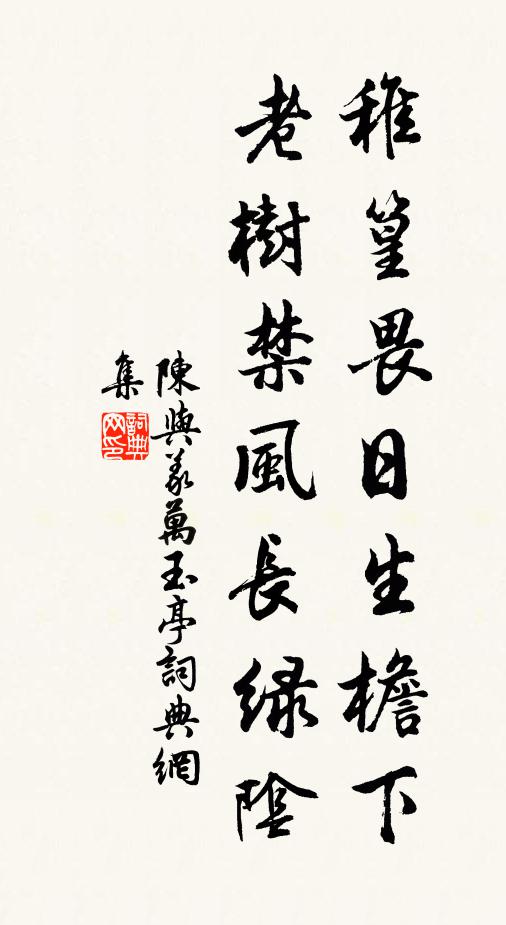 稚篁畏日生檐下
老樹禁風長緑陰
陳與義萬玉亭詞典網
集
詞典网印